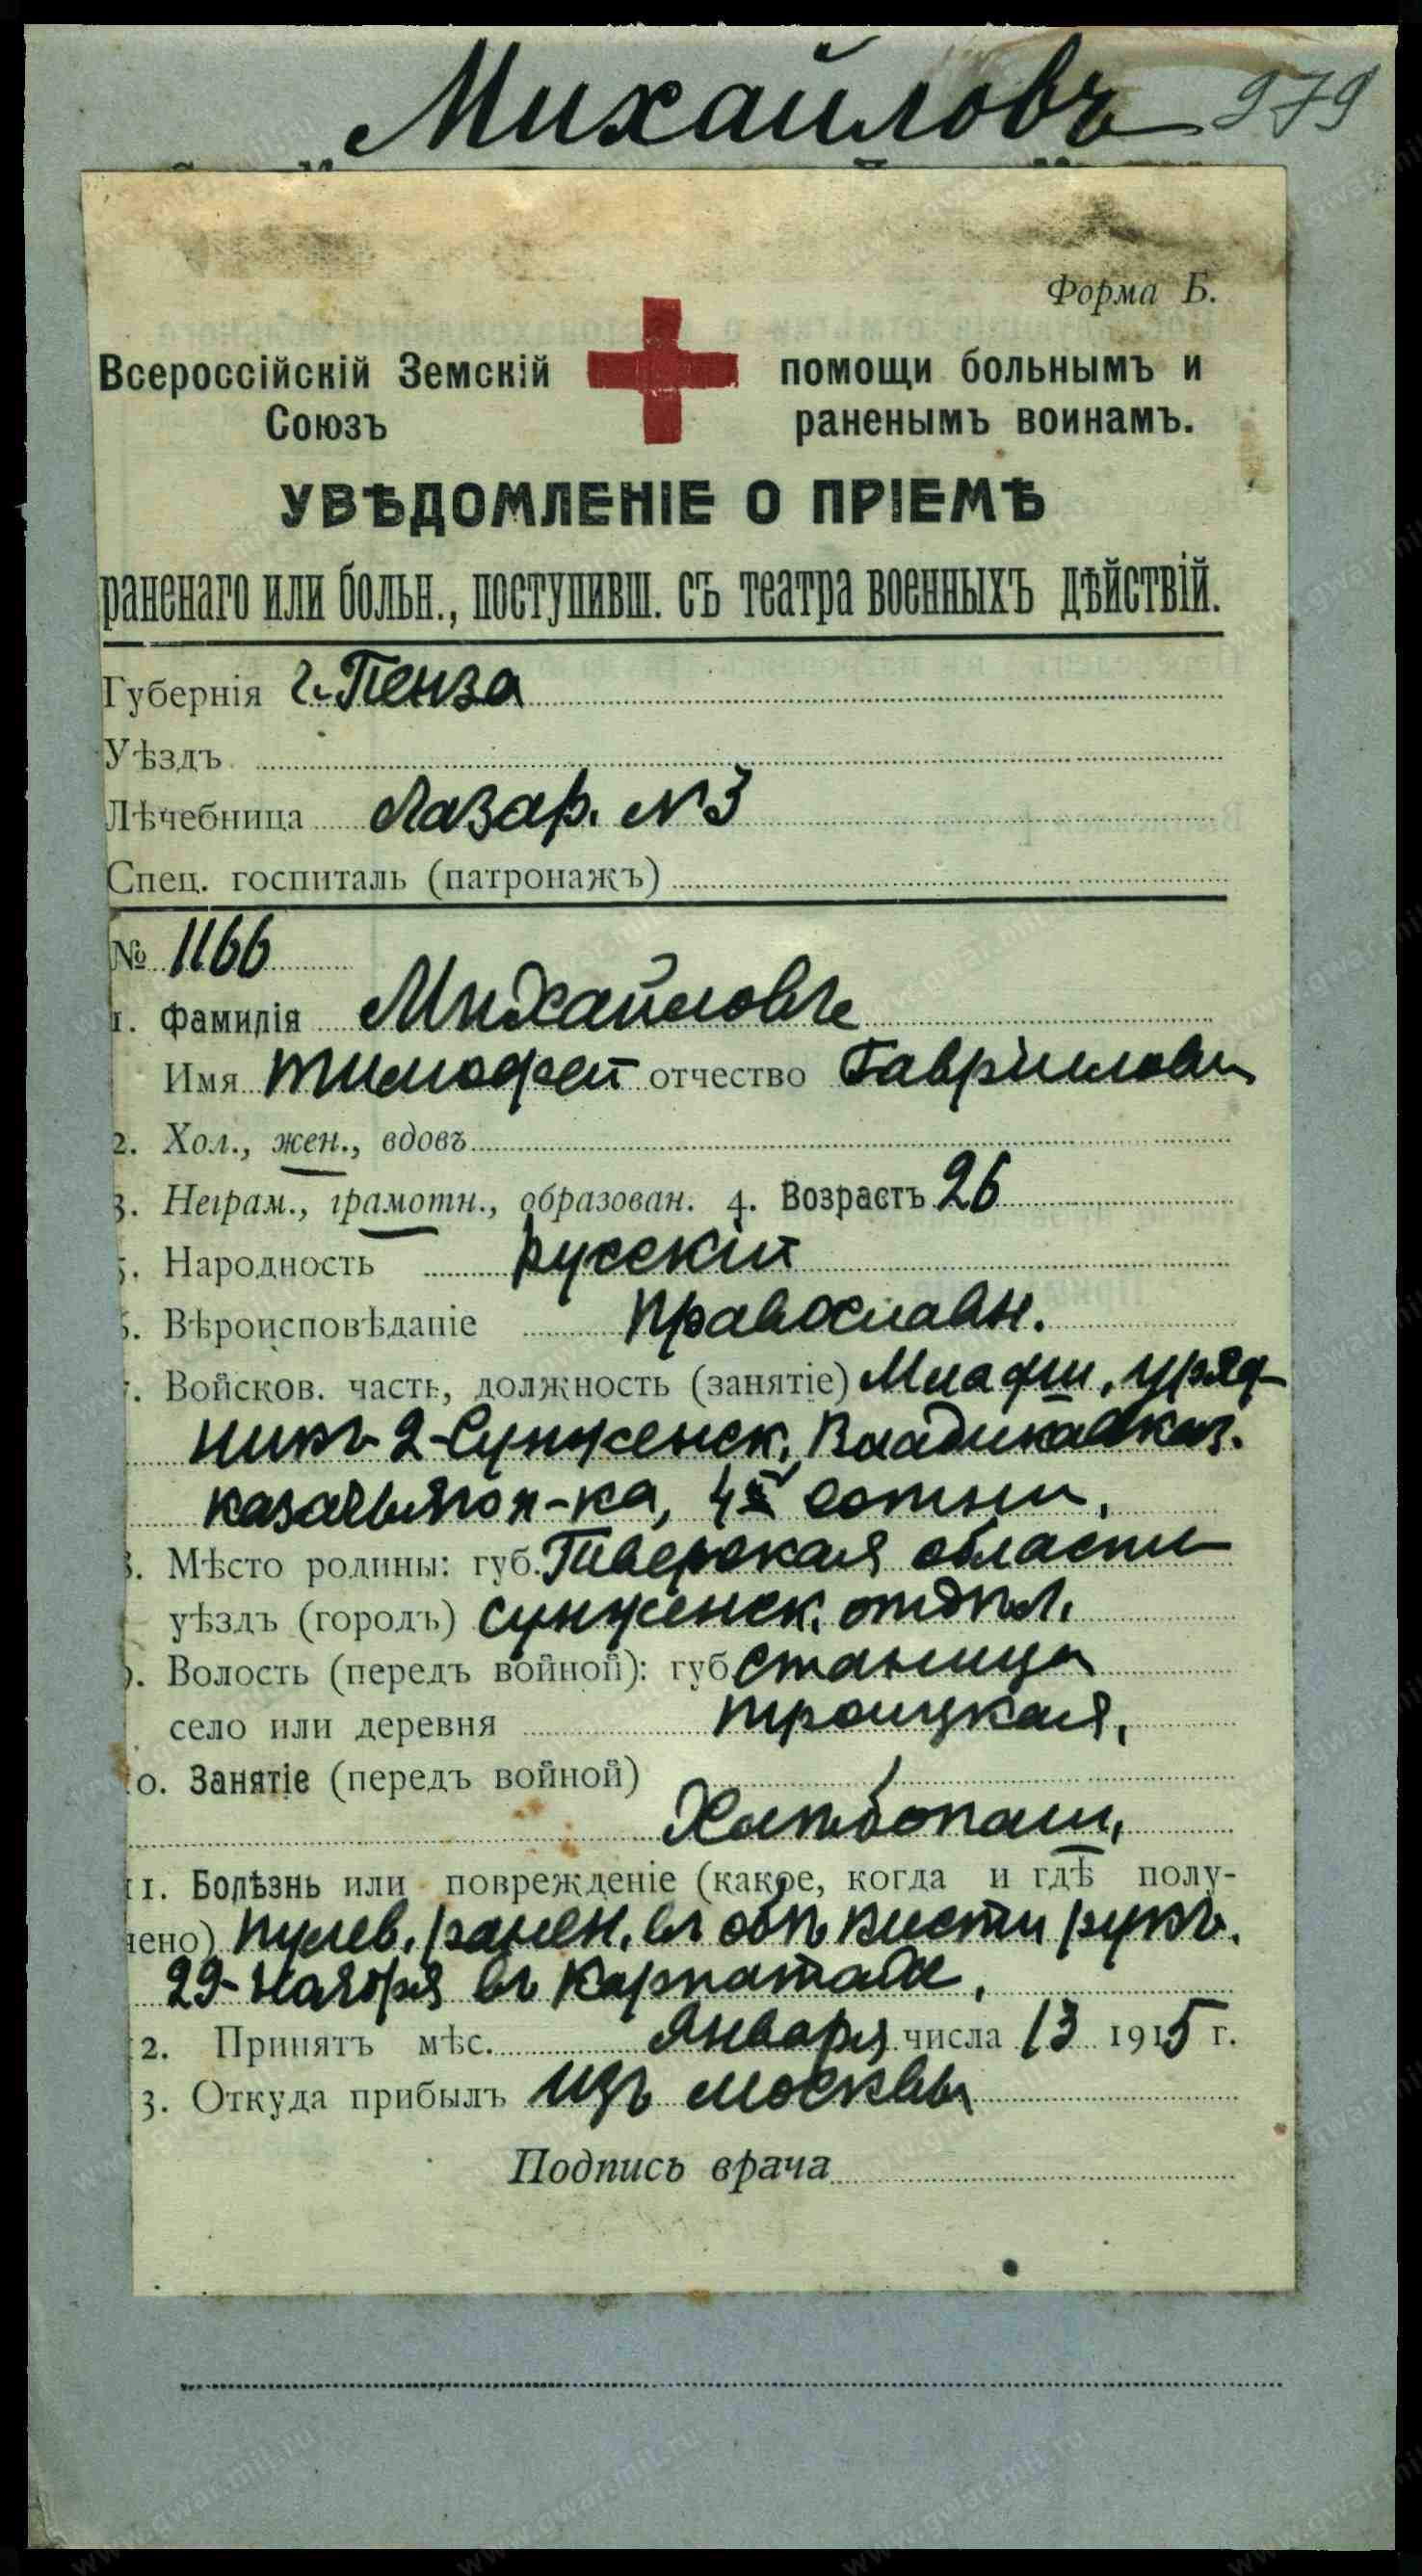 Михайловъ 979
Форма Б.
Всероссійскій Земскій помощи больнымъ и
Союзъ раненымъ воинамъ.
УВѢДОМЛЕНІЕ О ПРІЕМѢ
раненаго или больн., поступивш. съ театра военныхъ дѣйствій.
Губернія г. Пенза
Уѣздъ
Лѣчебница Лазар. № 3
Спец. госпиталь (патронажъ)
№ 1166
1. Фамилія Михайловъ
Имя Тимофей отчество Гавриилови
2. Хол., жен., вдовъ
3. Неграм., грамотн., образован. 4. Возрастъ 26
5. Народность русскій
6. Вѣроисповѣданіе православн.
7. Войсков. часть, должность (занятіе) Младш. уряд-
никъ 2-Сунженск. Владикавказ.
казачьяго п-ка, 4й сотни,
8. Мѣсто родины: губ. Тверская области
уѣздъ (городъ) сунженск. отдѣл.
9. Волость (передъ войной): губ станица
село или деревня троицкая,
10. Занятіе (передъ войной)
Хлѣбопаш,
11. Болѣзнь или поврежденіе (какое, когда и гдѣ полу-
чено) пулев. ранен. въ обѣ кисти рукъ.
29-ноября въ карпатахъ,
12. Принятъ мѣс. января числа 13 1915 г.
13. Откуда прибылъ изъ москвы
Подпись врача